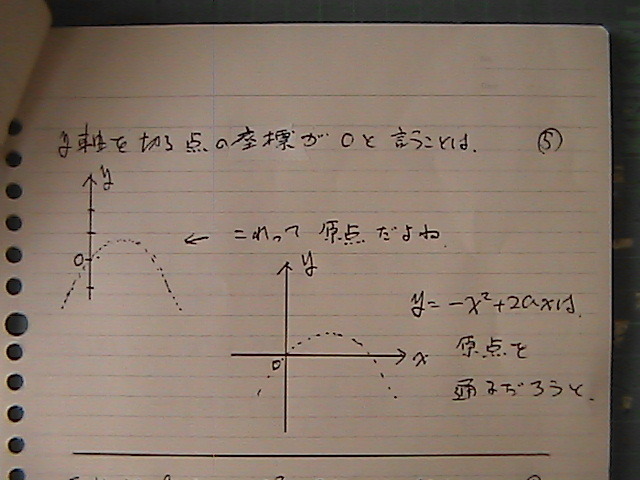 y軸を切る点の座標が0と言うことは. ⑤
y
0
← これって 原点だよね.
y
0
x
y=-x²+2axは.
原点を
通るだろうと.